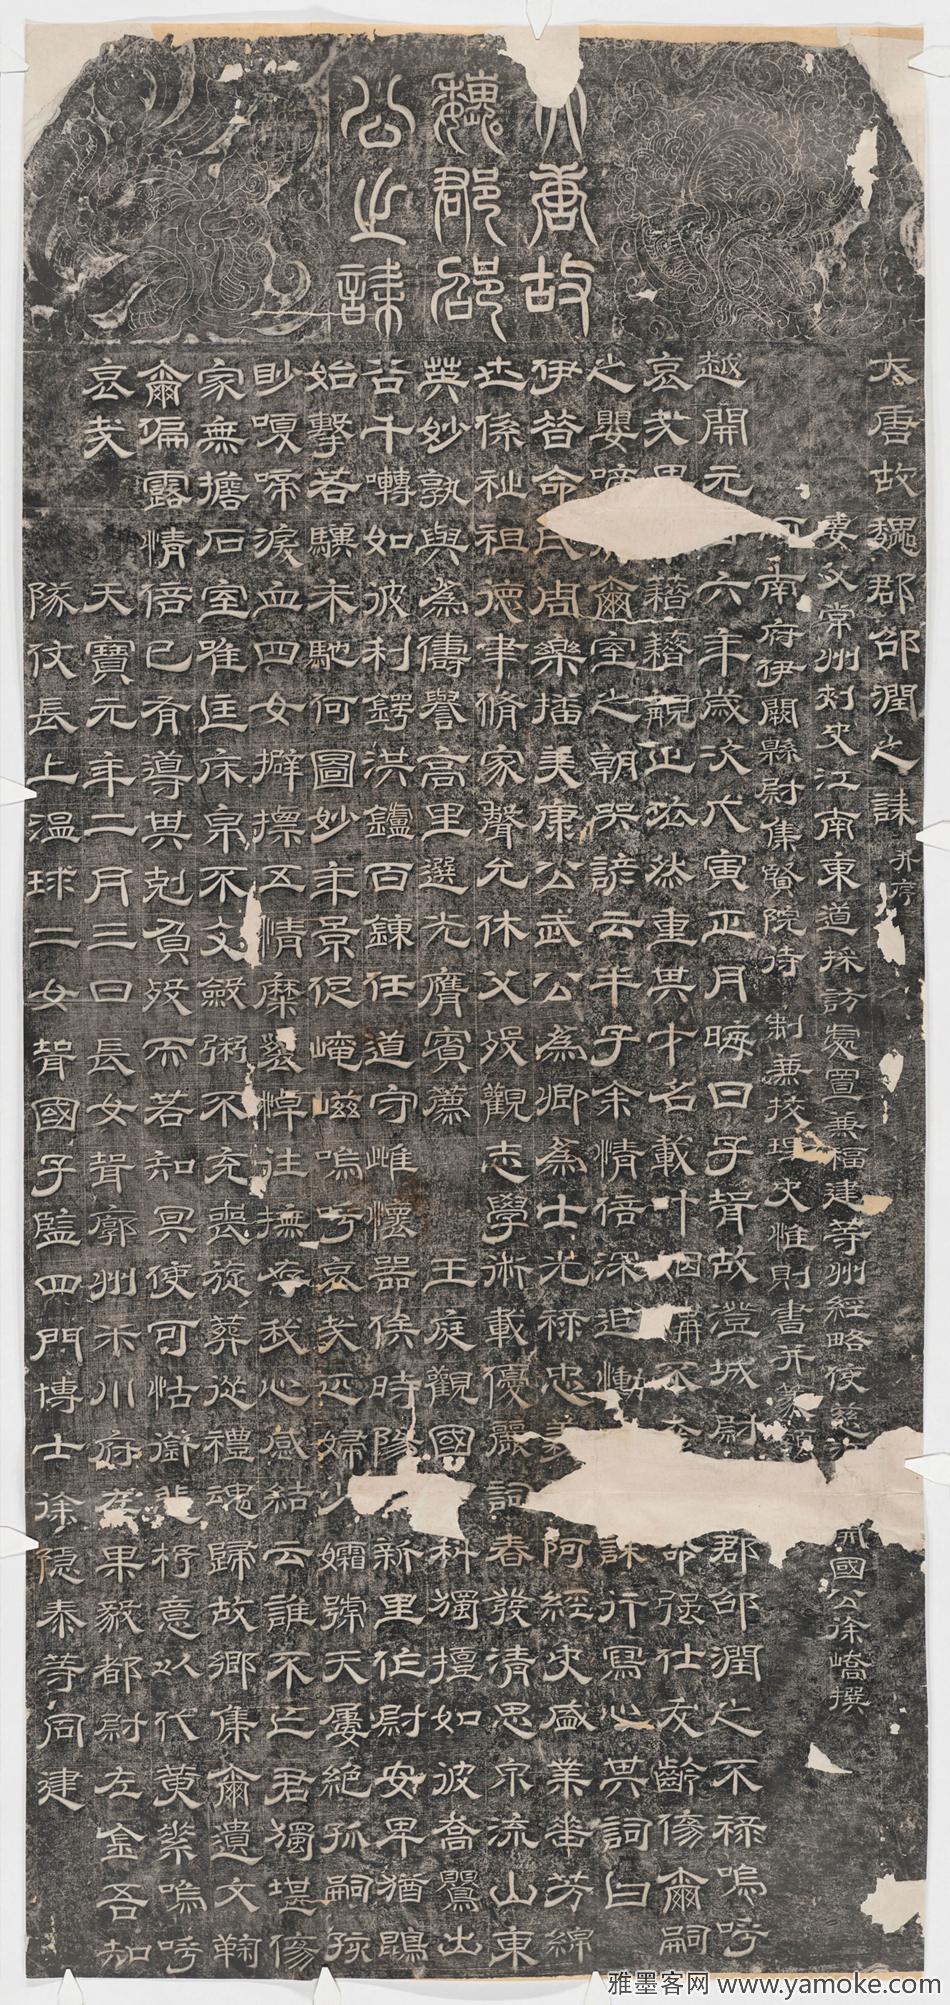 大唐故
魏郡邵
公之誄
大唐故魏郡邵潤之誄并序
妻父常州刺史江南東道採訪處置兼福建等州經略使慈 開國公徐嶠撰
河南府伊闕縣尉集賢院待制兼校理史惟則書并篆額
越開元廿六年歲次戊寅正月晦日子聟故澄城尉 郡邵潤之不祿嗚呼
哀哉 藉藉覯止茲然重其才名載 命強仕友齡俻爾嗣
之嬰啼 爾室之朝哭諺云半子余情倍深迫慟 誄行寫心其詞曰
伊昔命氏尚樂播美康公武公為卿為士光祿忠 阿經史盛業垂芳綿
世係祉祖德聿脩家聲允休父歿觀志學術載優麗詞春發清思泉流山東
英妙孰與為儔譽高里選光膺賓薦王庭觀國 科獨擅如彼喬鸎出
谷千囀如彼利鍔洪鑪百鍊任道守雌懷器俟時 新里作尉安卑猶鵾
始擊若驥未馳何圖妙年景促崦嵫嗚呼哀哉匹婦少孀號天屢絕孤嗣孩
眇嗄啼淚血四女擗摽五情糜 悼往撫存我心感結云誰不亡君獨堪傷
家無擔石室唯匡床帛不文斂粥不充喪旋葬從禮魂歸故鄉集爾遺文鞠
爾偏露情倍已有導其剋負歿而若知冥使可怙銜悲抒意以代黃素嗚呼
哀哉
天寶元年二月三日長女聟廓州禾川府左果毅都尉左金吾知
隊仗長上溫球二女聟國子監四門博士徐隱泰等同建
雅墨客网 www.yamoke.com